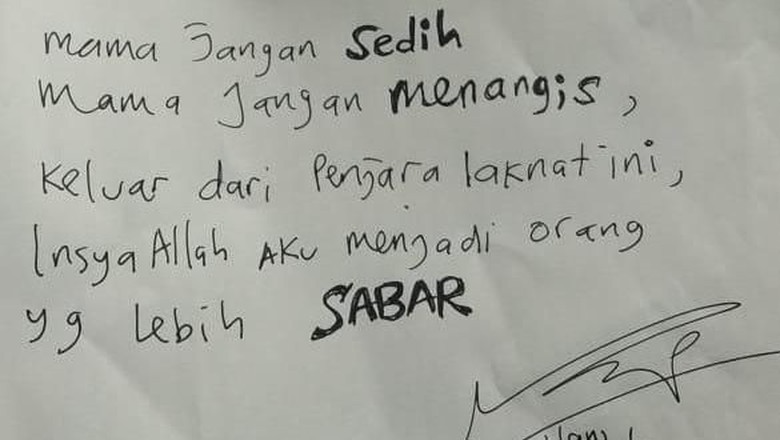 mama Jangan Sedih
Mama Jangan menangis,
Keluar dari Penjara laknat ini,
Insya Allah AKu menjadi orang
yg lebih SABAR